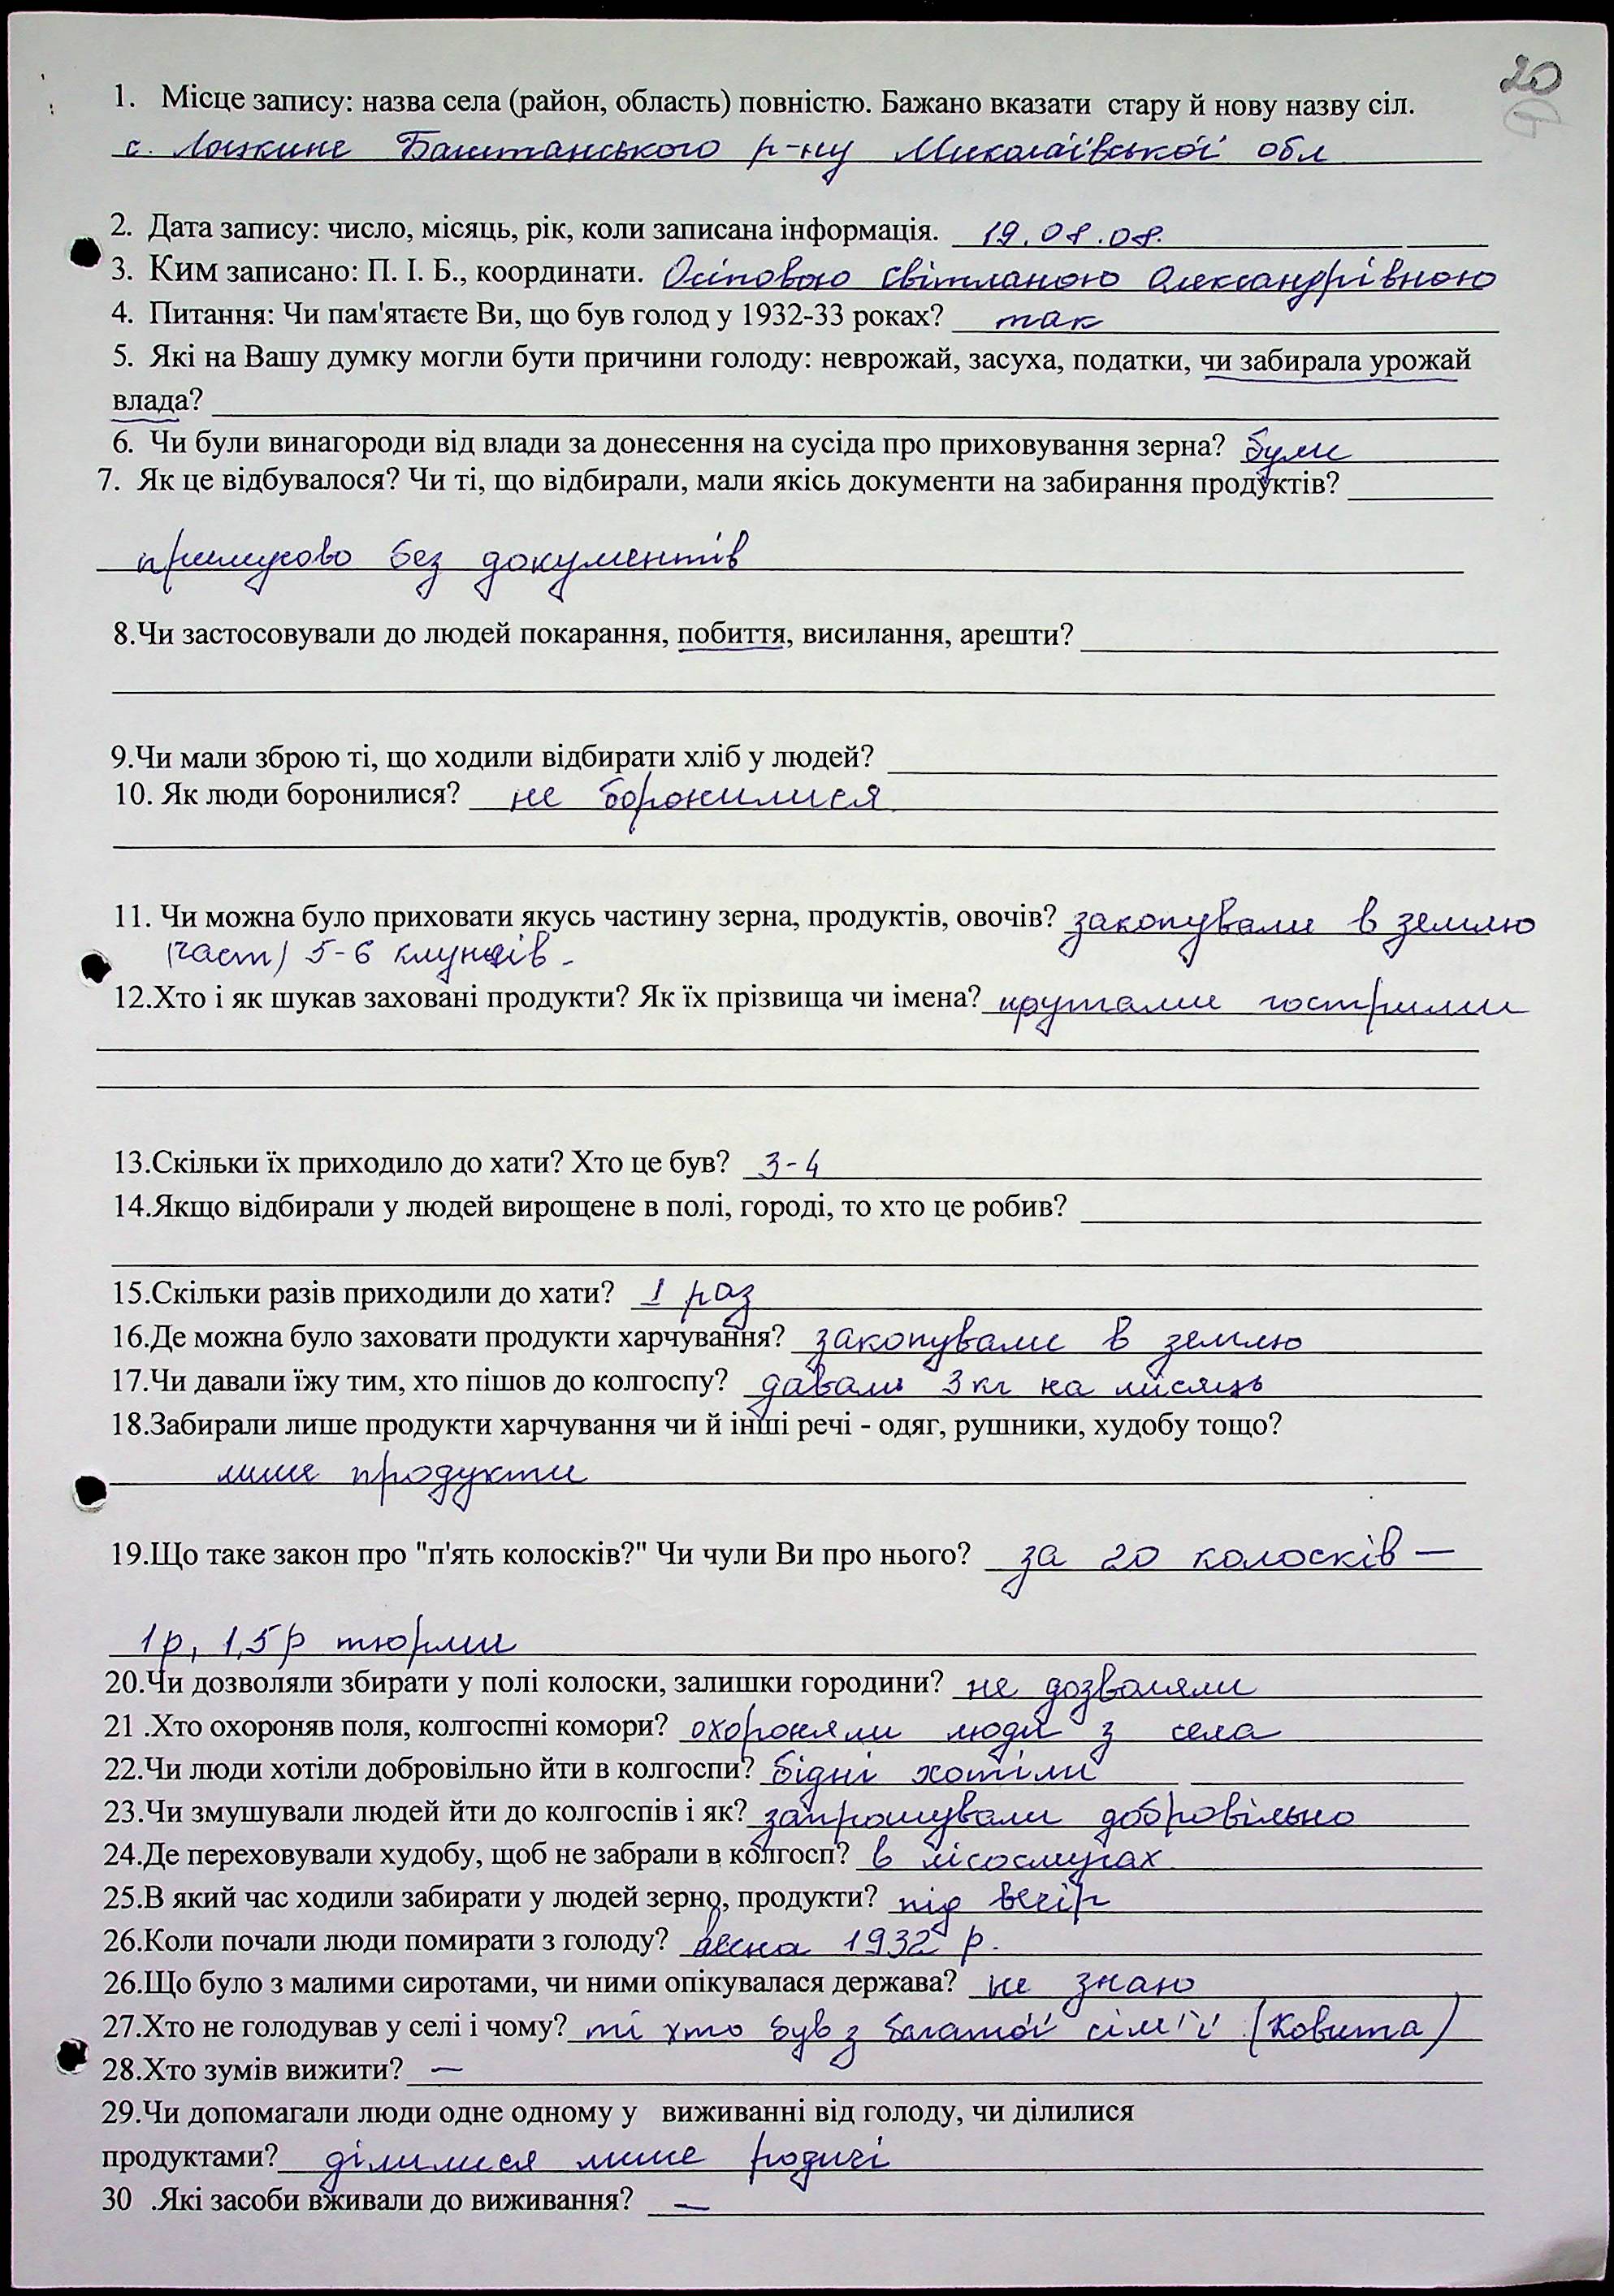 20
1. Місце запису: назва села (район, область) повністю. Бажано вказати стару й нову назву сіл.
с. Лоцкине Баштанського р-ну Миколаївської обл
2. Дата запису: число, місяць, рік, коли записана інформація. 19.08.08.
3. Ким записано: П. І. Б., координати. Осіповою Світланою Олександрівною
4. Питання: Чи пам'ятаєте Ви, що був голод у 1932-33 роках? так
5. Які на Вашу думку могли бути причини голоду: неврожай, засуха, податки, чи забирала урожай
влада?
6. Чи були винагороди від влади за донесення на сусіда про приховування зерна? були
7. Як це відбувалося? Чи ті, що відбирали, мали якісь документи на забирання продуктів?
примусово без документів
8.Чи застосовували до людей покарання, побиття, висилання, арешти?
9.Чи мали зброю ті, що ходили відбирати хліб у людей?
10. Як люди боронилися? не боронилися
11. Чи можна було приховати якусь частину зерна, продуктів, овочів? закопували в землю
(част) 5-6 клунків -
12.Хто і як шукав заховані продукти? Як їх прізвища чи імена? прутами гострими
13.Скільки їх приходило до хати? Хто це був? 3-4
14.Якщо відбирали у людей вирощене в полі, городі, то хто це робив?
15.Скільки разів приходили до хати? 1 раз
16.Де можна було заховати продукти харчування? закопували в землю
17.Чи давали їжу тим, хто пішов до колгоспу? давали 3 кг на місяць
18.Забирали лише продукти харчування чи й інші речі - одяг, рушники, худобу тощо?
лише продукти
19.Що таке закон про "п'ять колосків?" Чи чули Ви про нього? за 20 колосків —
1р, 1,5р тюрми
20.Чи дозволяли збирати у полі колоски, залишки городини? не дозволяли
21 .Хто охороняв поля, колгоспні комори? охороняли люди з села
22.Чи люди хотіли добровільно йти в колгоспи? бідні хотіли
23.Чи змушували людей йти до колгоспів і як? запрошували добровільно
24.Де переховували худобу, щоб не забрали в колгосп? в лісосмугах
25.В який час ходили забирати у людей зерно, продукти? під вечір
26.Коли почали люди помирати з голоду? весна 1932 р.
26.Що було з малими сиротами, чи ними опікувалася держава? не знаю
27.Хто не голодував у селі і чому? ті хто був з багатої сім'ї (Ковита)
28.Хто зумів вижити? —
29.Чи допомагали люди одне одному у виживанні від голоду, чи ділилися
продуктами? ділилися лише родичі
30 .Які засоби вживали до виживання? —